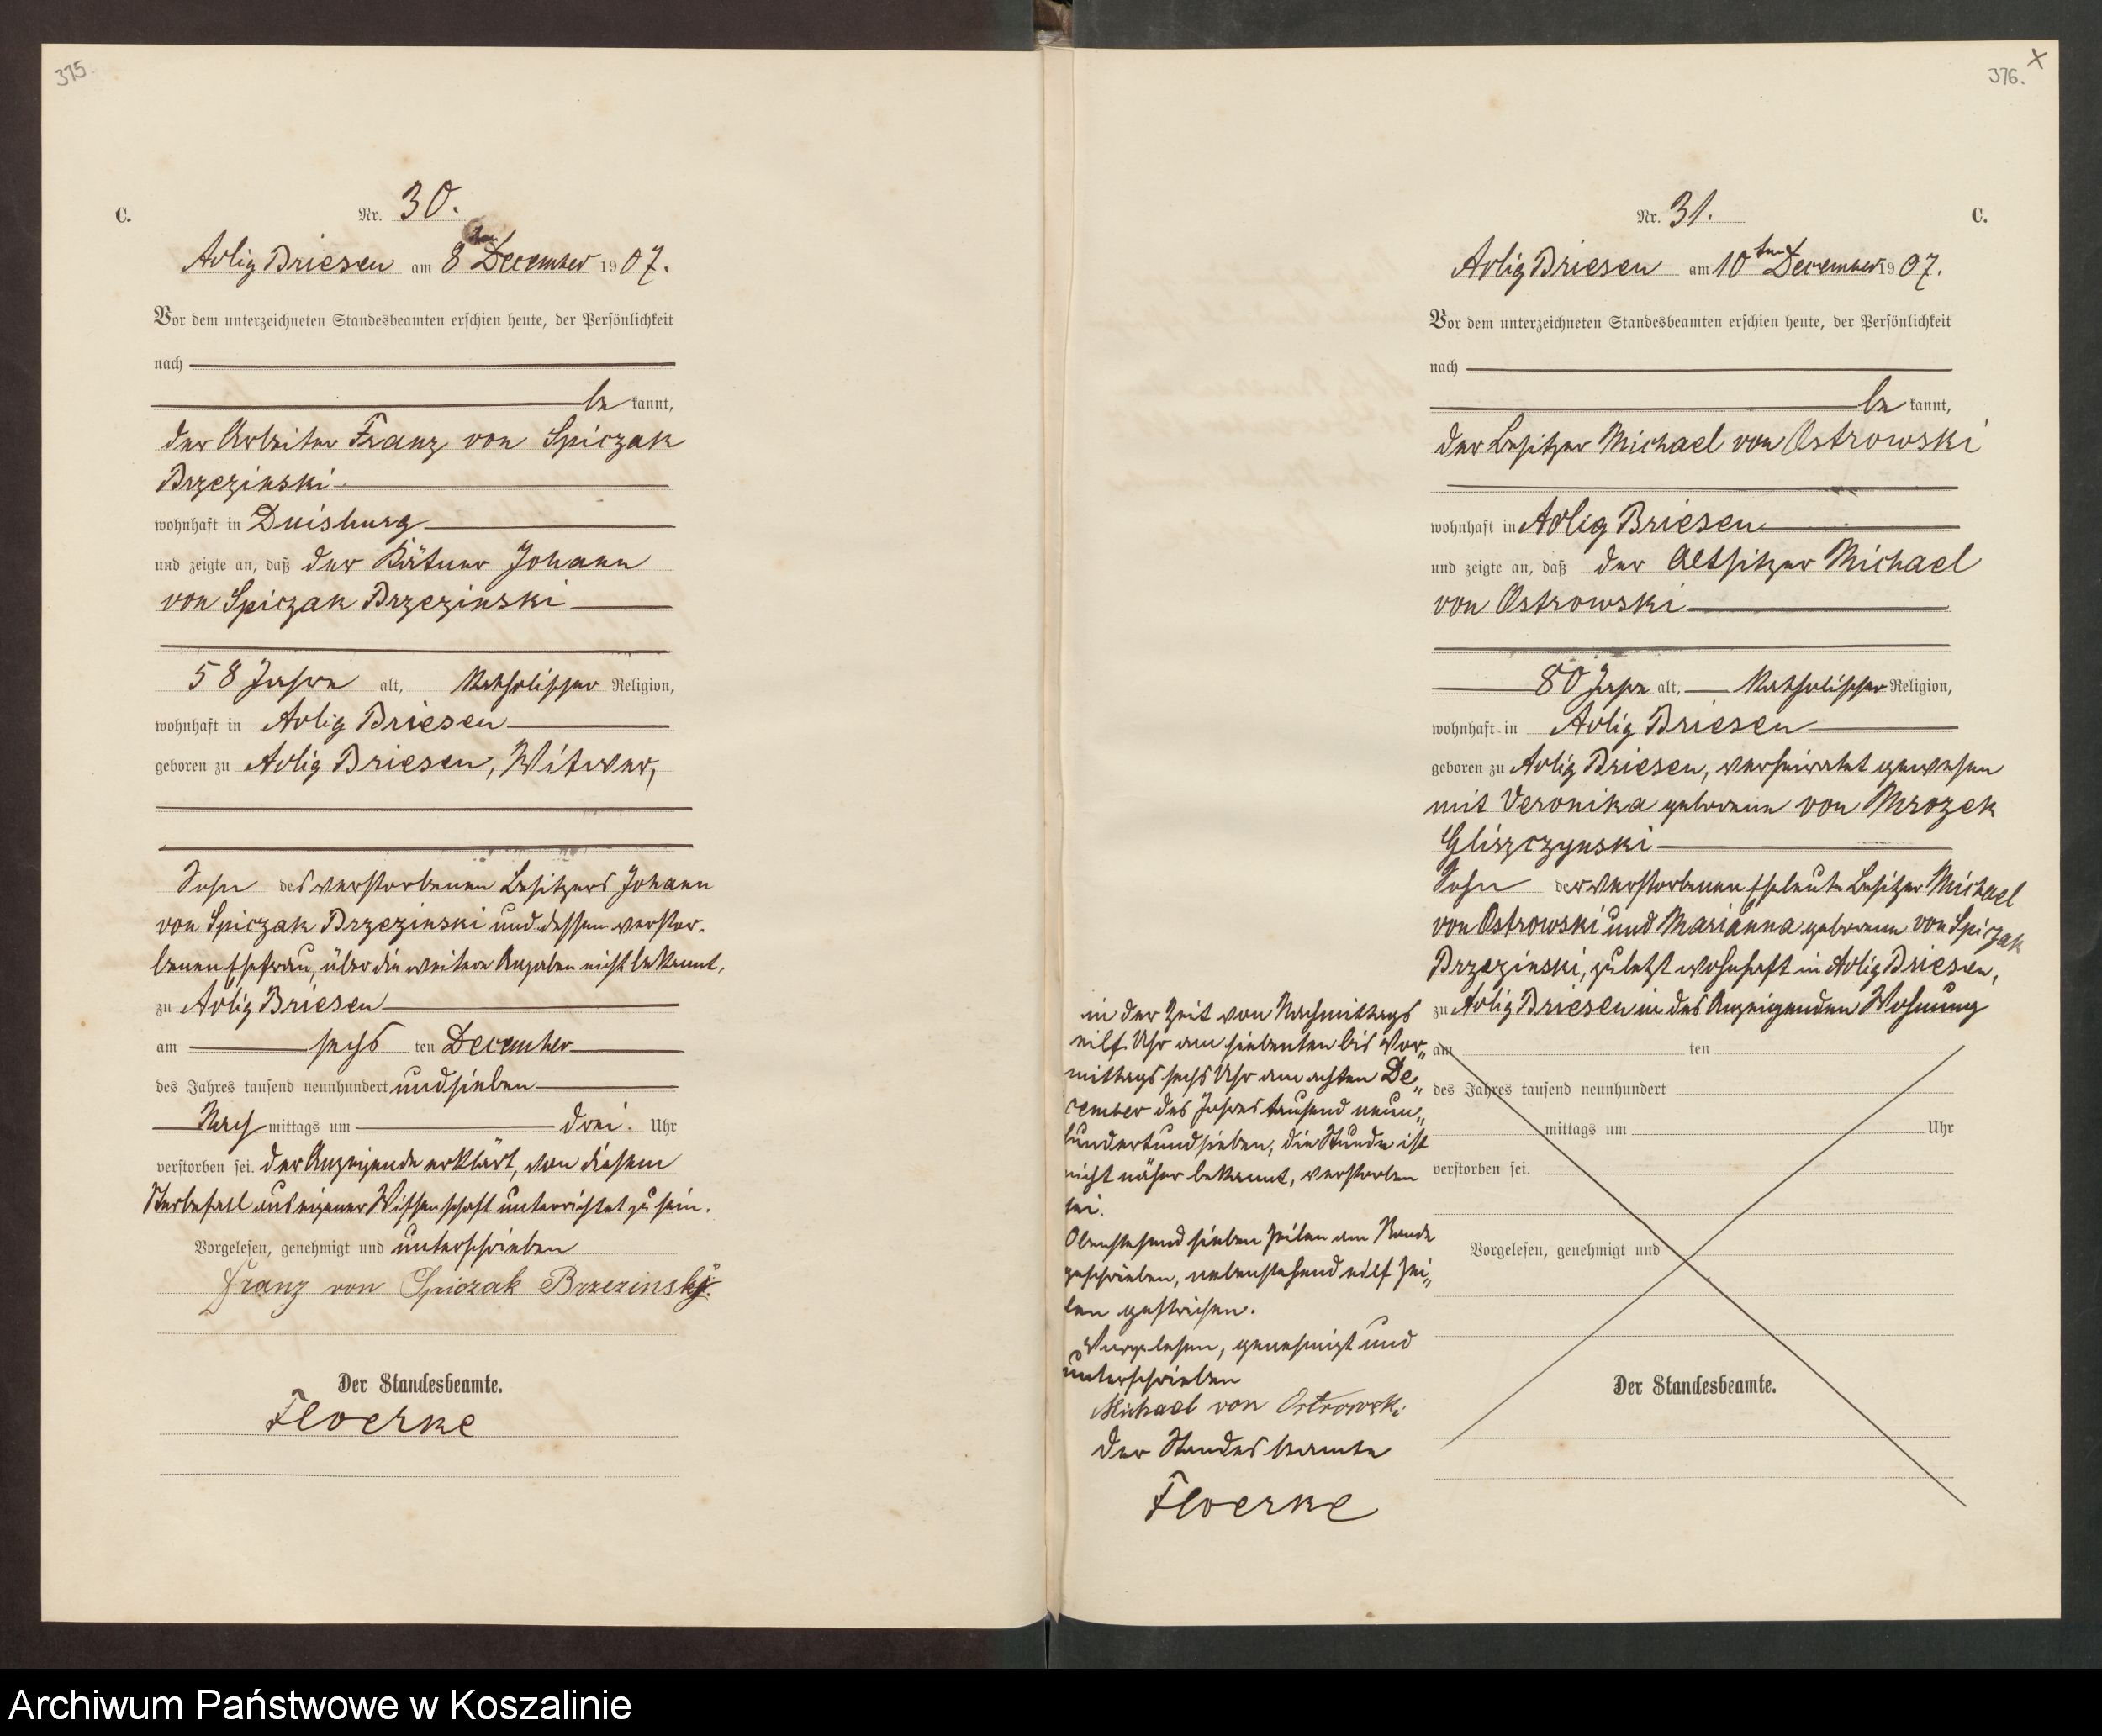 375.
C.
Nr. 30.
Adlig Briesen am 8ten December 1907.
Vor dem unterzeichneten Standesbeamten erschien heute, der Persönlichkeit
nach
be kannt,
der Arbeiter Franz von Spiczak
Brzezinski
wohnhaft in Duisburg
und zeigte an, daß der Kätner Johann
von Spiczak Brzezinski
58 Jahre alt, katholischer Religion,
wohnhaft in Adlig Briesen
geboren zu Adlig Briesen, Witwer,
Sohn des verstorbenen Besitzers Johann
von Spiczak Brzezinski und dessen verstor-
benen Ehefrau, über die weitere Angaben nicht bekannt,
zu Adlig Briesen
am sechs ten December
des Jahres tausend neunhundert und sieben
Nach mittags um drei Uhr
verstorben sei. Der Anzeigende erklärt, von diesem
Sterbefall aus eigener Wissenschaft unterrichtet zu sein.
Vorgelesen, genehmigt und unterschrieben
Franz von Spiczak Brzezinski.
Der Standesbeamte.
Floerke
376.
X
Nr. 31.
C.
Adlig Briesen am 10ten December 1907.
Vor dem unterzeichneten Standesbeamten erschien heute, der Persönlichkeit
nach
be kannt,
der Besitzer Michael von Ostrowski
wohnhaft in Adlig Briesen
und zeigte an, daß der Altsitzer Michael
von Ostrowski
80 Jahre alt, katholischer Religion,
wohnhaft in Adlig Briesen
geboren zu Adlig Briesen, verheiratet gewesen
mit Veronika geborene von Mrozek
Gliszczynski
Sohn der verstorbenen Eheleute Besitzer Michael
von Ostrowski und Marianna geborene von Spiczak
Brzezinski, zuletzt wohnhaft in Adlig Briesen,
zu Adlig Briesen in des Anzeigenden Wohnung
am ten
des Jahres tausend neunhundert
mittags um Uhr
verstorben sei.
Vorgelesen, genehmigt und
Der Standesbeamte.
in der Zeit von Nachmittags
eilf Uhr am siebenten bis Vor„
mittags sechs Uhr am achten De„
cember des Jahres tausend neun„
hundertundsieben, die Stunde ist
nicht näher bekannt, verstorben
sei.
Obenstehend sieben Zeilen am Rande
geschrieben, nebenstehend eilf Zei„
len gestrichen.
Vorgelesen, genehmigt und
unterschrieben
Michael von Ostrowski
Der Standesbeamte
Floerke
Archiwum Państwowe w Koszalinie